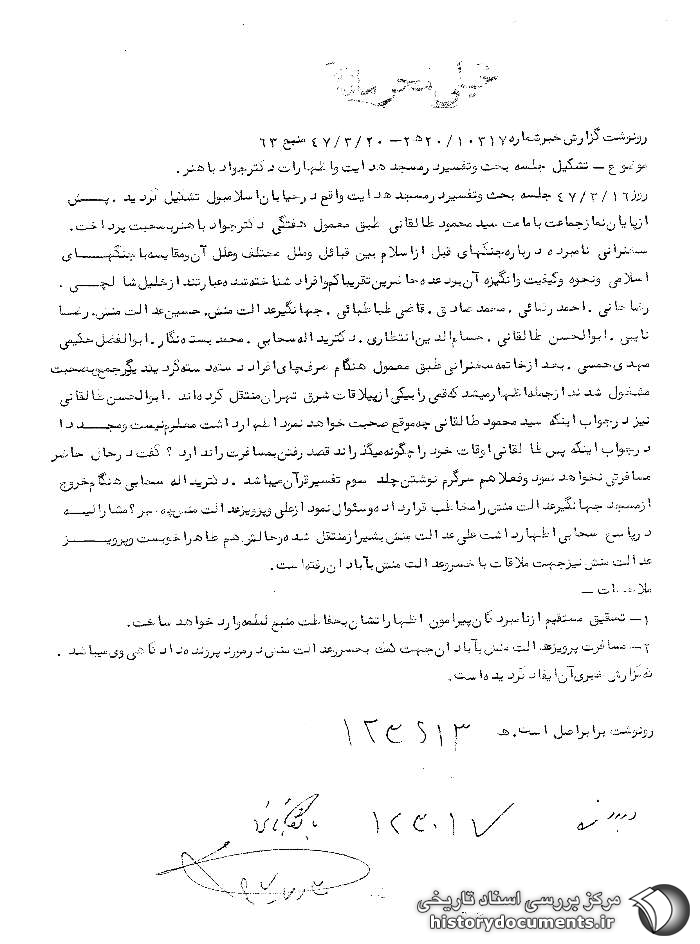 خیلی محرمانه
رونوشت گزارش خبر شماره ۱۰۳۱۷ / ۲۰ ه‍ ۲ – ۴۷/۳/۲۰ منبع ۶۳
موضوع – تشکیل جلسه بحث و تفسیر در مسجد هدایت و اظهارات دکتر جواد باهنر.
روز ۴۷/۳/۱۶ جلسه بحث و تفسیر در مسجد هدایت واقع در خیابان اسلامبول تشکیل گردید . پس از
پایان نماز جماعت با مامت سید محمود طالقانی طبق معمول هفتگی دکتر جواد باهنر بصحبت پرداخت.
سخنرانی نامبرده درباره جنگهای قبل از اسلام بین قبائل و ملل مختلف و علل آن و مقایسه با جنگهای
اسلامی و نحوه و کیفیت و انگیزه آن بود عده حاضرین تقریبا کم و افراد شناخته شده عبارتند از خلیل شالچی .
رضا خانی . احمد رضائی . محمد صادق . قاضی طباطبائی . جهانگیر عدالت منش. حسین عدالت منش. رضا
نایبی . ابوالحسن طالقانی . حسام الدین انتظاری . دکتر یداله سحابی . محمد بسته نگار . ابوالفضل حکیمی
مهدی حمسی . بعد از خاتمه سخنرانی طبق معمول هنگام صرف چای افراد دسته دسته گرد یکدیگر جمع و بصحبت
مشغول شدند از جمله اظهار میشد که قمی را بیکی از ییلاقات شرق تهران منتقل کرده اند . ابوالحسن طالقانی
نیز در جواب اینکه سید محمود طالقانی چه موقع صحبت خواهد نمود اظهار داشت معلوم نیست و مجددا
در جواب اینکه پس طالقانی اوقات خود را چگونه میگذراند قصد رفتن بمسافرت را ندارد ؟ گفت در حال حاضر
مسافرتی نخواهد نمود و فعلا هم سرگرم نوشتن جلد سوم تفسیر قرآن میباشد . دکتر یداله سحابی هنگام خروج
از مسجد جهانگیر عدالت منش را مخاطب قرار داده و سئوال نمود از علی و پرویز عدالت منش چه خبر ؟ مشارالیه
در پاسخ سحابی اظهار داشت علی عدالت منش بشیراز منتقل شده و حالش هم ظاهرا خوبست و پرویز
عدالت منش نیز جهت ملاقات با خسرو عدالت منش بآبادان رفته است.
ملاحظات –
۱– تحقیق مستقیم از نامبردگان پیرامون اظهاراتشان بحفاظت منبع لطمه وارد خواهد ساخت.
۲– مسافرت پرویز عدالت منش بآبادان جهت کمک بخسرو عدالت منش در مورد پرونده دادگاهی وی میباشد .
که گزارش خبری آن ایفاد گردیده است.
رونوشت برابر اصل است. ه‍
مرکز بررسی اسناد تاریخی
historydocuments.ir